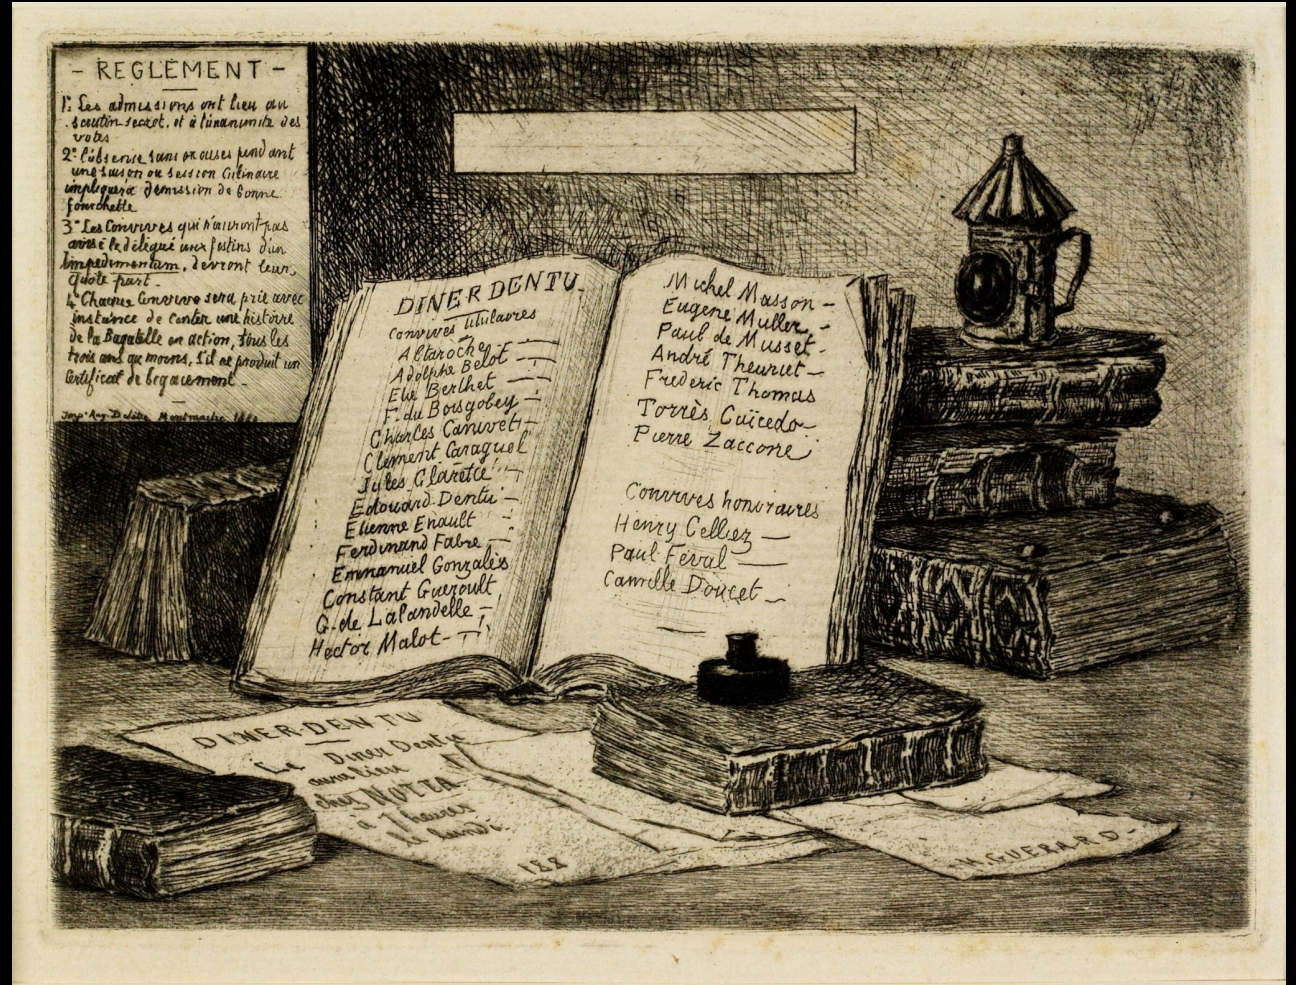 - REGLEMENT -
1º Les admissions ont lieu au
scrutin secret, et à l'unanimité des
votes
2º l'absense sans excuses pendant
une saison ou session Culinaire
impliquera démission de bonne
fourchette
3º Les Convives qui n'auront pas
avisé le délégué aux festins d'un
Impedimentum, devront leur
quote part.
4º Chaque Convive sera prié avec
instance de conter une histoire
de la Bagatelle en action, tous les
trois ans au moins, s'il ne produit un
Certificat de begaiement.
Impº Aug. Delâtre Montmartre
DINER DENTU
Convives titulaires
Altaroche
Adolphe Belot
Elie Berthet
F. du Boisgobey
Charles Canivet
Clement Caraguel
Jules Claretie
Edouard Dentu
Etienne Enault
Ferdinand Fabre
Emmanuel Gonzalès
Constant Gueroult
G. de Lalandelle
Hector Malot
Michel Masson
Eugene Muller
Paul de Musset
André Theuriet
Frederic Thomas
Torrès Caïcedo
Pierre Zaccone
Convives honoraires
Henry Celliez
Paul Féval
Camille Doucet
DINER DENTU
Le Diner Dentu
aura lieu
chez NOTTA
à 7 heures
le lundi
188
H. GUERARD